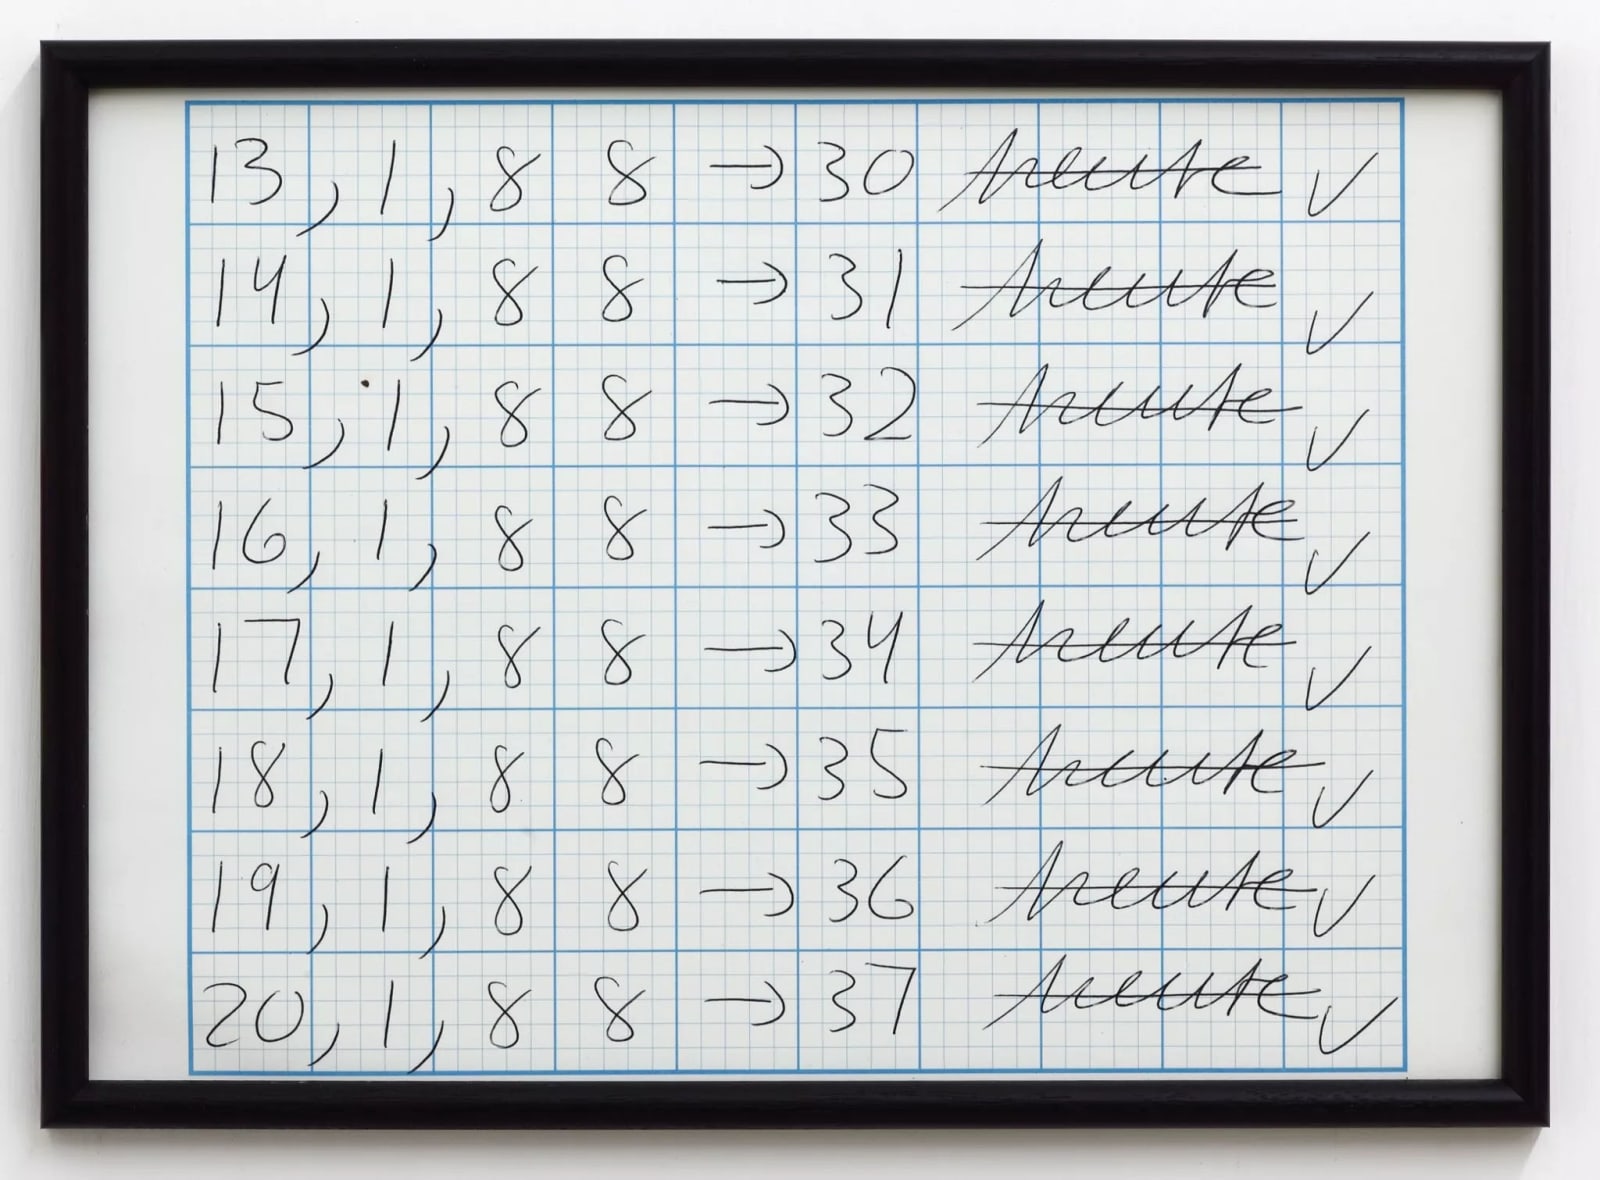 13, 1, 8 8 → 30 heute ✓
14, 1, 8 8 → 31 heute ✓
15, 1, 8 8 → 32 heute ✓
16, 1, 8 8 → 33 heute ✓
17, 1, 8 8 → 34 heute ✓
18, 1, 8 8 → 35 heute ✓
19, 1, 8 8 → 36 heute ✓
20, 1, 8 8 → 37 heute ✓